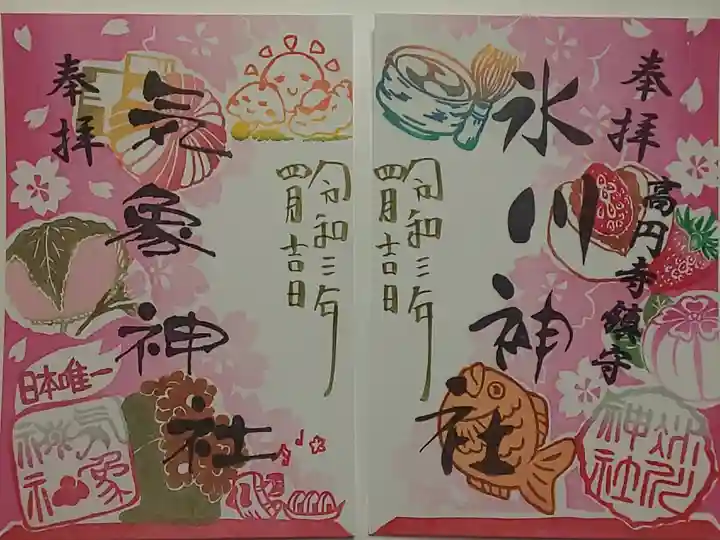 奉拝
高円寺鎮守
氷川神社
令和三年
四月吉日
氷川
神社
奉拝
気象神社
令和三年
四月吉日
日本唯一
気象
神社